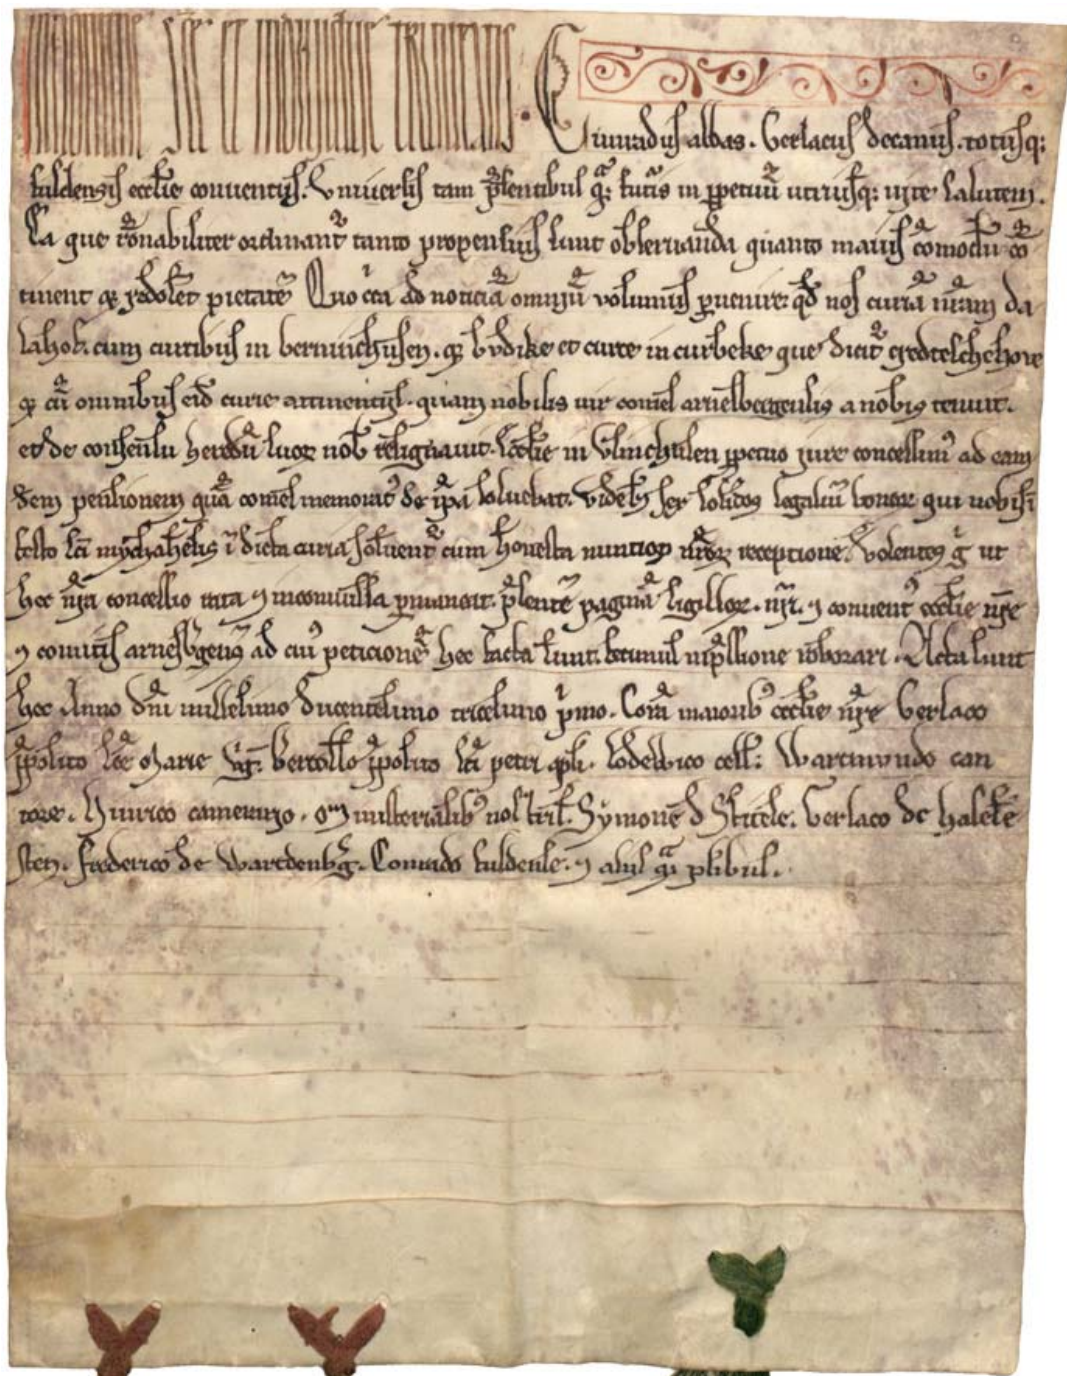 In nomine sce et individue trinitatis. Cunradus abbas. Gerlacus decanus. totusq;
fuldensis eccłie conventus. Universis tam p̃sentibus q̃; futuris in perpetuũ utriusq; vite salutem.
Ea que r̃onabiliter ordinant tanto propensius sunt observanda quanto maius cõmodũ cõ
tinent et redolet pietatẽ Quo circa ad noticiã omniũ volumus pervenire qd nos curiã nr̃am da
lahob. cum curtibus in bervinchusen. et bvdike et curte in curbeke que dicit
et cũ omnibus eid curie attinentijs. quam nobilis vir comes arnesbergensis a nobis tenuit.
et de consensu heredũ suor nob resignavit. eccłie in Ulinchusen ppetuo jure concessim ad eam
dem pensionem quã comes memorat de ip̃a solvebat. videł sex solidos legaliũ bonor qui nobis ĩ
festo sci mychahelis ĩ dicta curia solvent cum honesta nuntior nr̃or receptione. Volentes g ut
hec nr̃a concessio rata et inconvulsa pmaneat. p̃sentẽ paginã sigillor. nr̃i. et convent eccłie nr̃e
et comitis arnesbgensis ad cui peticionẽ hec facta sunt. fecimus inp̃ssione roborari. Acta sunt
hec Anno dñi millesimo ducentesimo tricesimo p̃mo. Corã maiorib eccłie nr̃e Gerlaco
p̃posito sc̃e Marie Bertoldo p̃posito sci petri apłi. Lodewico cell: Wartmundo can
tore. Hinrico camerario. Ministerialib nostris. Symone d Slitese. Gerlaco de haseles
sten. frederico de Wartdenbg. Conrado fuldense. et aliis q̃ plibus.